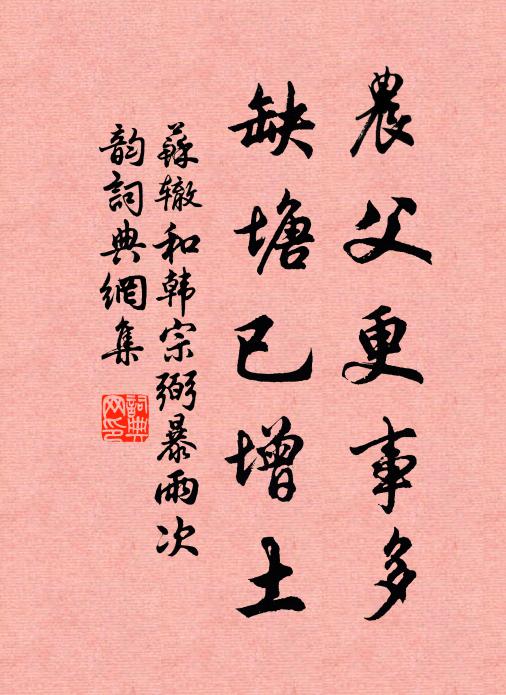 農父更事多
缺塘已增土
蘇辙和韩宗弼暴雨次
韵詞典網集
詞典网印